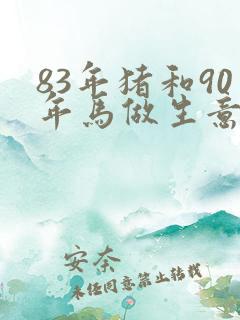 83年猪和90
年马做生意
安奈
未经同意禁止转载